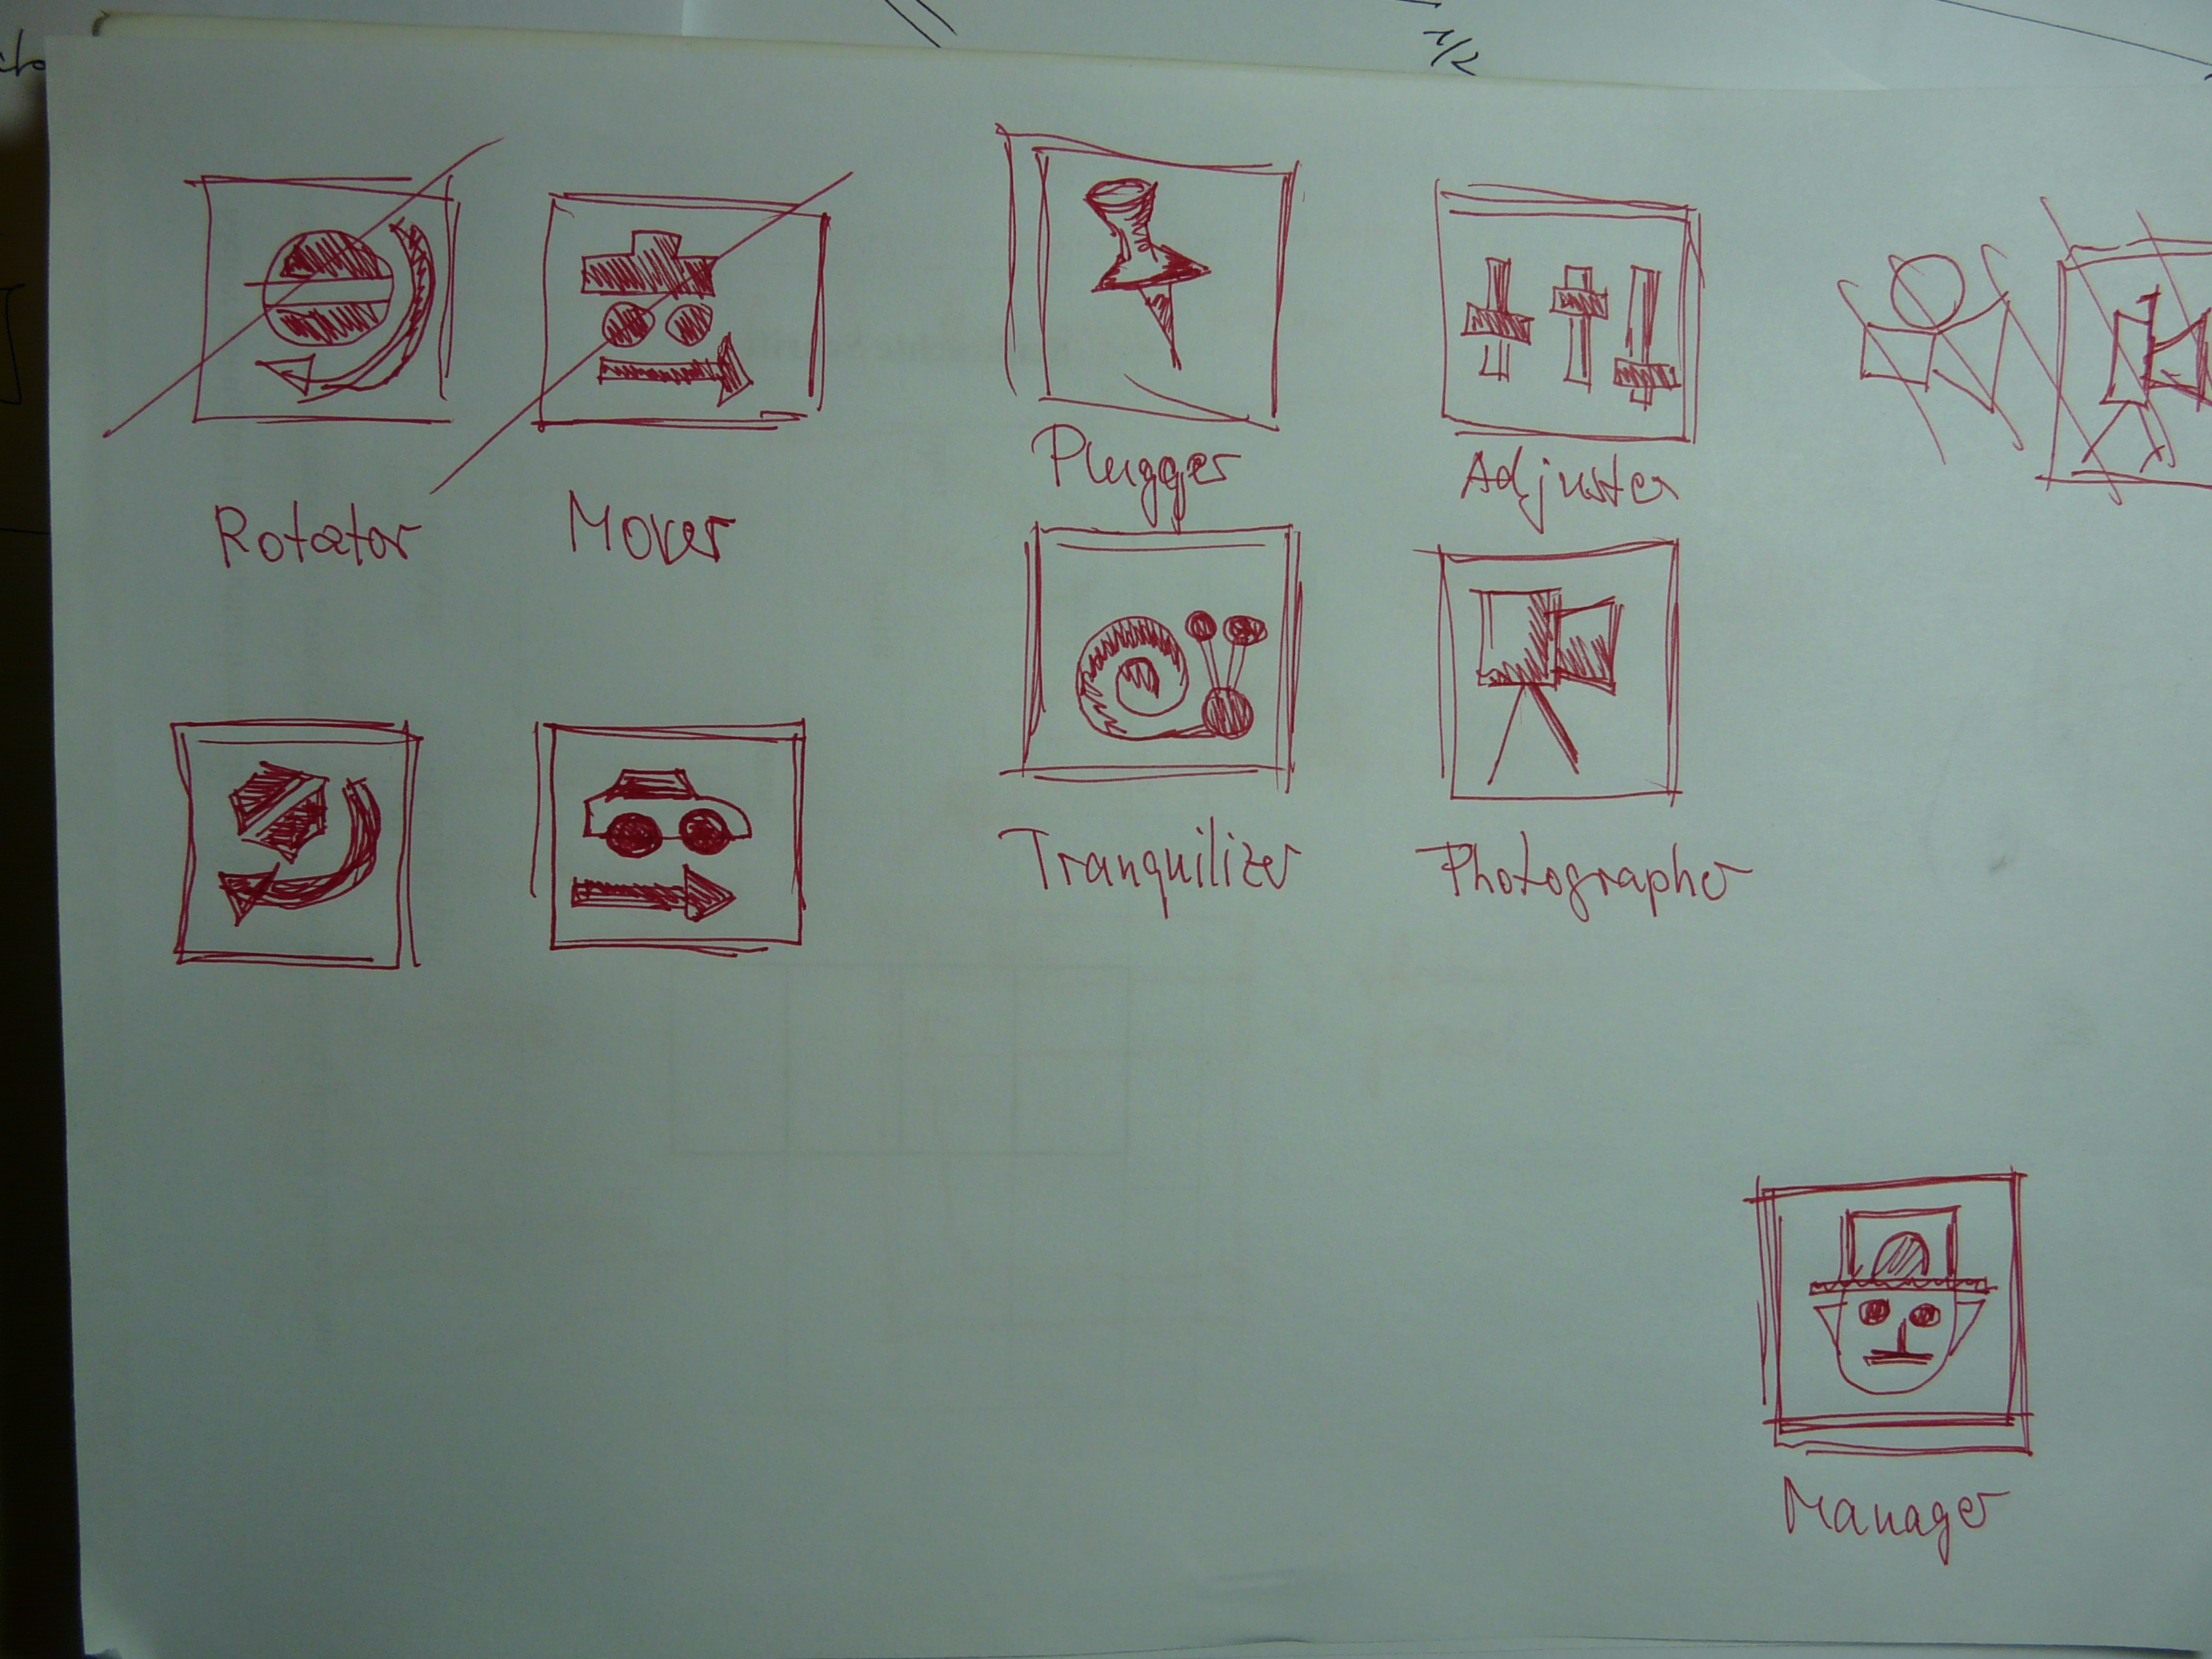 1/2
Rotator
Mover
Plugger
Adjuster
Tranquilizer
Photographer
Manager